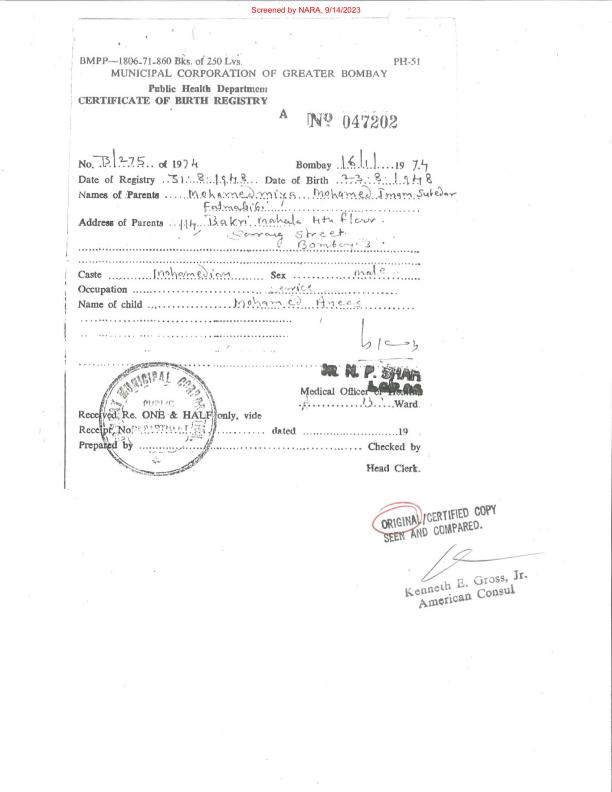 Screened by NARA, 9/14/2023
BMPP—1806-71-860 Bks. of 250 Lvs. PH-51
MUNICIPAL CORPORATION OF GREATER BOMBAY
Public Health Department
CERTIFICATE OF BIRTH REGISTRY
A Nº 047202
No. B/275 of 1974 Bombay 16/1/ 1974
Date of Registry 31.8.1948 Date of Birth 23.8.1948
Names of Parents Mohamedmiya Mohamed Imam Subedar
Fatmabibi
Address of Parents Bakri Mahala 4th floor.
Street
Bombay 3
Caste Mohamedian Sex male
Occupation service
Name of child Mohamed Anees
DR N. P. SHAH
Medical Officer of Health
Ward
Received Re. ONE & HALF only, vide
Receipt, No. dated 19
Prepared by Checked by
Head Clerk.
MUNICIPAL CORPORATION
PUBLIC
DEPARTMENT
ORIGINAL/CERTIFIED COPY
SEEN AND COMPARED.
Kenneth E. Gross, Jr.
American Consul